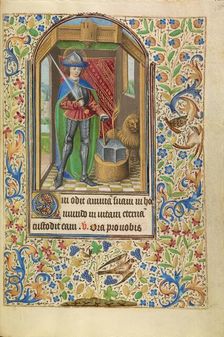 Qui odit animā suam in hoc
mundo in vitam eterna
custodit eam. V. Ora pro nobis